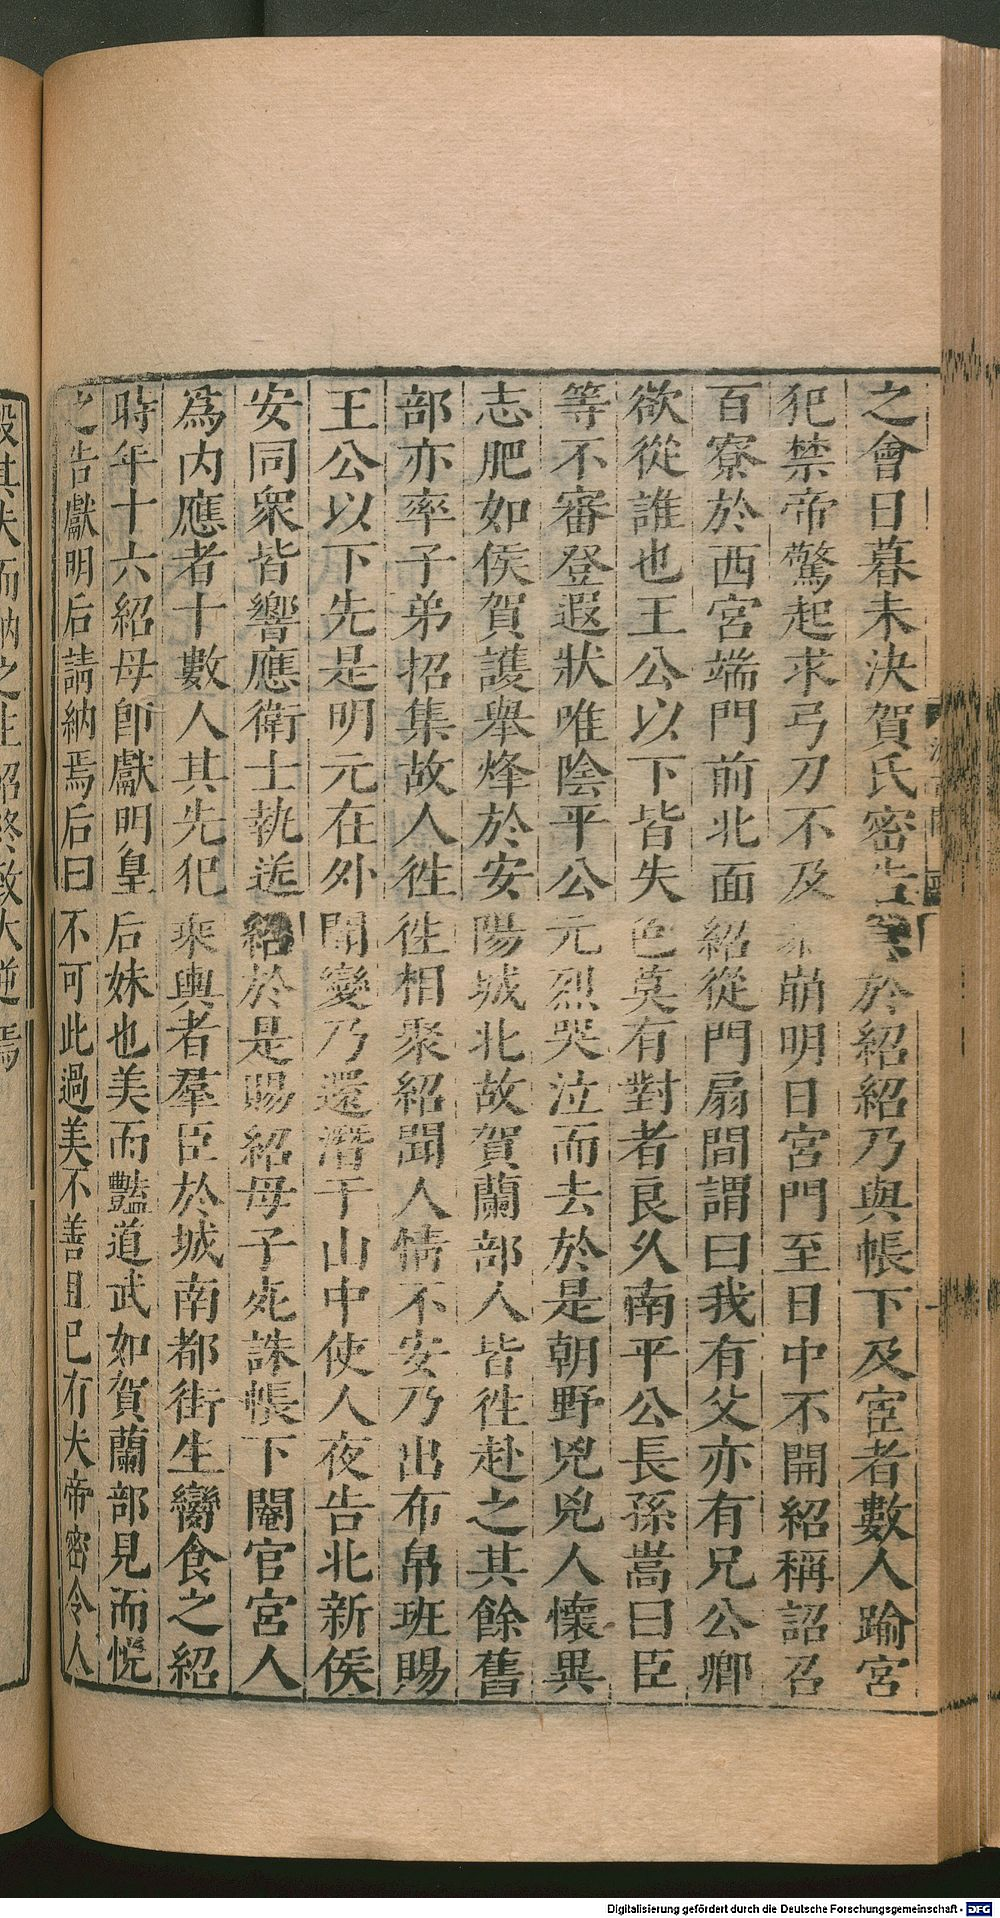 之會日暮未決賀氏密告於紹紹乃與帳下及宦者數人踰宮
犯禁帝驚起求弓刀不及崩明日宮門至日中不開紹稱詔召
百寮於西宮端門前北面紹從門扇間謂曰我有父亦有兄公卿
欲從誰也王公以下皆失色莫有對者良久南平公長孫嵩曰臣
等不審登遐狀唯陰平公元烈哭泣而去於是朝野兇兇人懷異
志肥如侯賀護舉烽於安陽城北故賀蘭部人皆徃赴之其餘舊
部亦率子弟招集故人徃徃相聚紹聞人情不安乃出布帛班賜
王公以下先是明元在外聞變乃還潛于山中使人夜告北新侯
安同衆皆響應衛士執送紹於是賜紹母子死誅帳下閹官宮人
爲内應者十數人其先犯乘輿者羣臣於城南都街生臠食之紹
時年十六紹母即獻明皇后妹也美而豔道武如賀蘭部見而悅
之告獻明后請納焉后曰不可此過美不善且已有夫帝密令人
殺其夫而納之生紹終致大逆焉
Digitalisierung gefördert durch die Deutsche Forschungsgemeinschaft - DFG